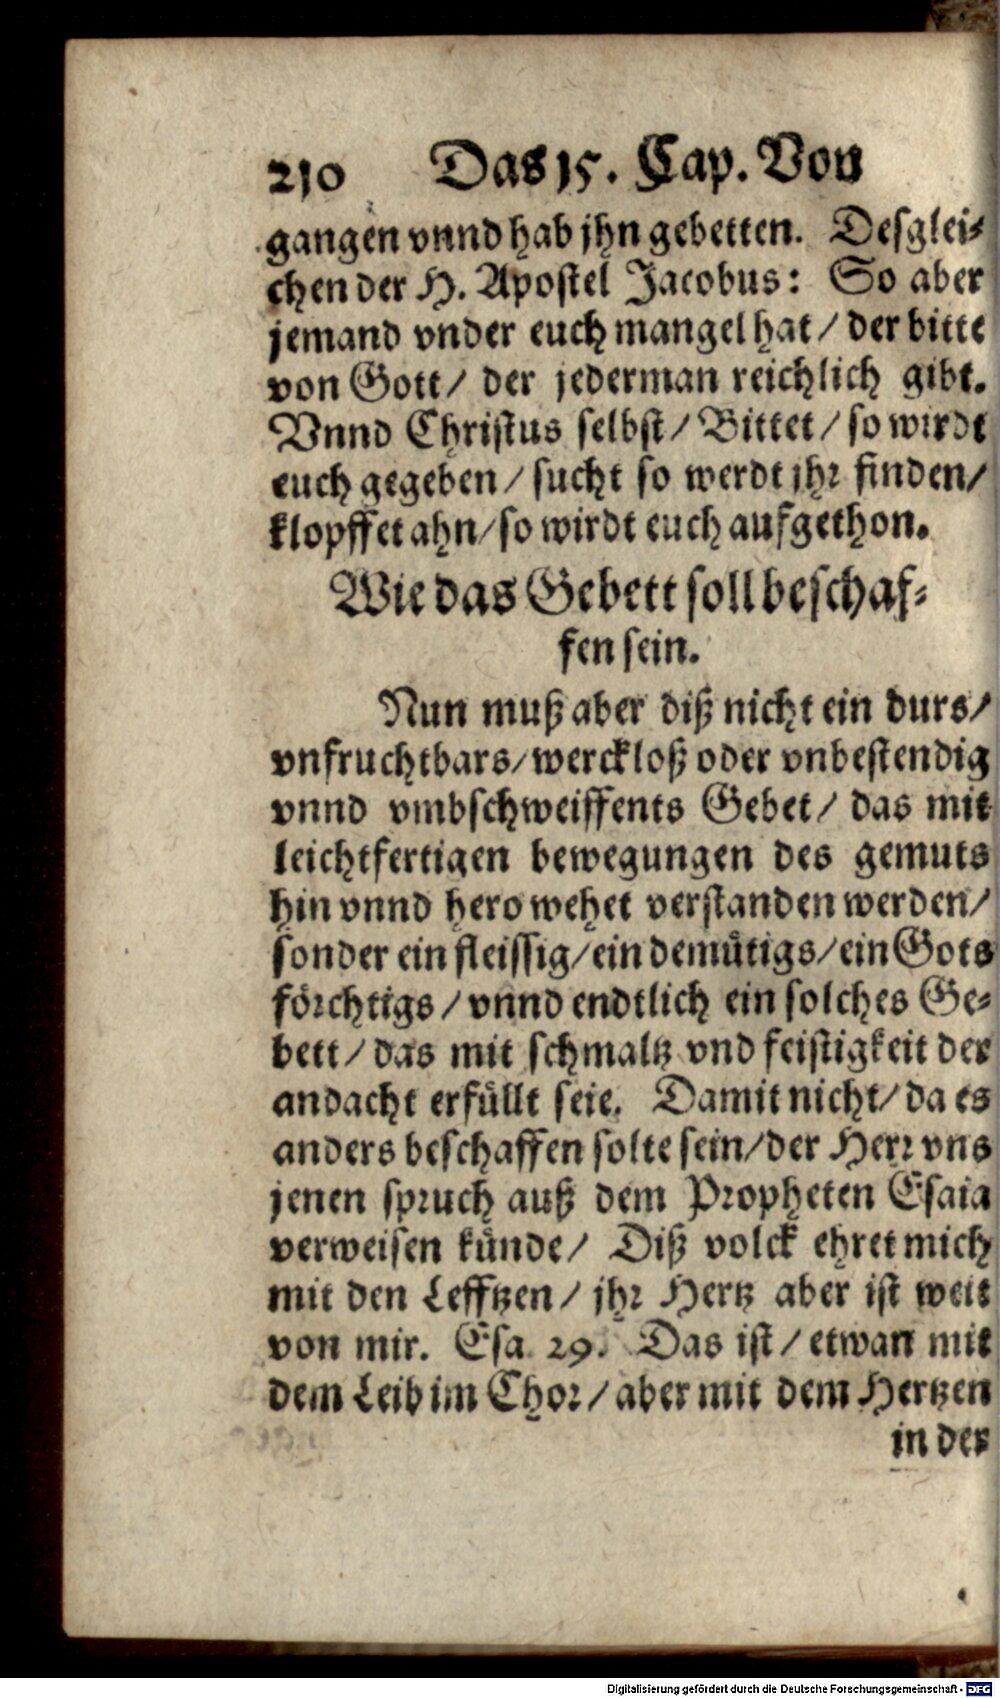 210 Das 15. Cap. Von
gangen vnnd hab jhn gebetten. Desglei⸗
chen der H. Apostel Jacobus: So aber
jemand vnder euch mangel hat / der bitte
von Gott / der jederman reichlich gibt.
Vnnd Christus selbst / Bittet / so wirdt
euch gegeben / sucht so werdt jhr finden /
klopffet ahn / so wirdt euch aufgethon.
Wie das Gebett soll beschaf⸗
fen sein.
Nun muß aber diß nicht ein durs /
vnfruchtbars / werckloß oder vnbestendig
vnnd vmbschweiffents Gebet / das mit
leichtfertigen bewegungen des gemuts
hin vnnd hero wehet verstanden werden /
sonder ein fleissig / ein demütigs / ein Gots
förchtigs / vnnd endtlich ein solches Ge⸗
bett / das mit schmaltz vnd feistigkeit der
andacht erfüllt seie. Damit nicht / da es
anders beschaffen solte sein / der Herr vns
jenen spruch auß dem Propheten Esaia
verweisen künde / Diß volck ehret mich
mit den Lefftzen / jhr Hertz aber ist weit
von mir. Esa. 29. Das ist / etwan mit
dem Leib im Chor / aber mit dem Hertzen
in der
Digitalisierung gefördert durch die Deutsche Forschungsgemeinschaft - DFG